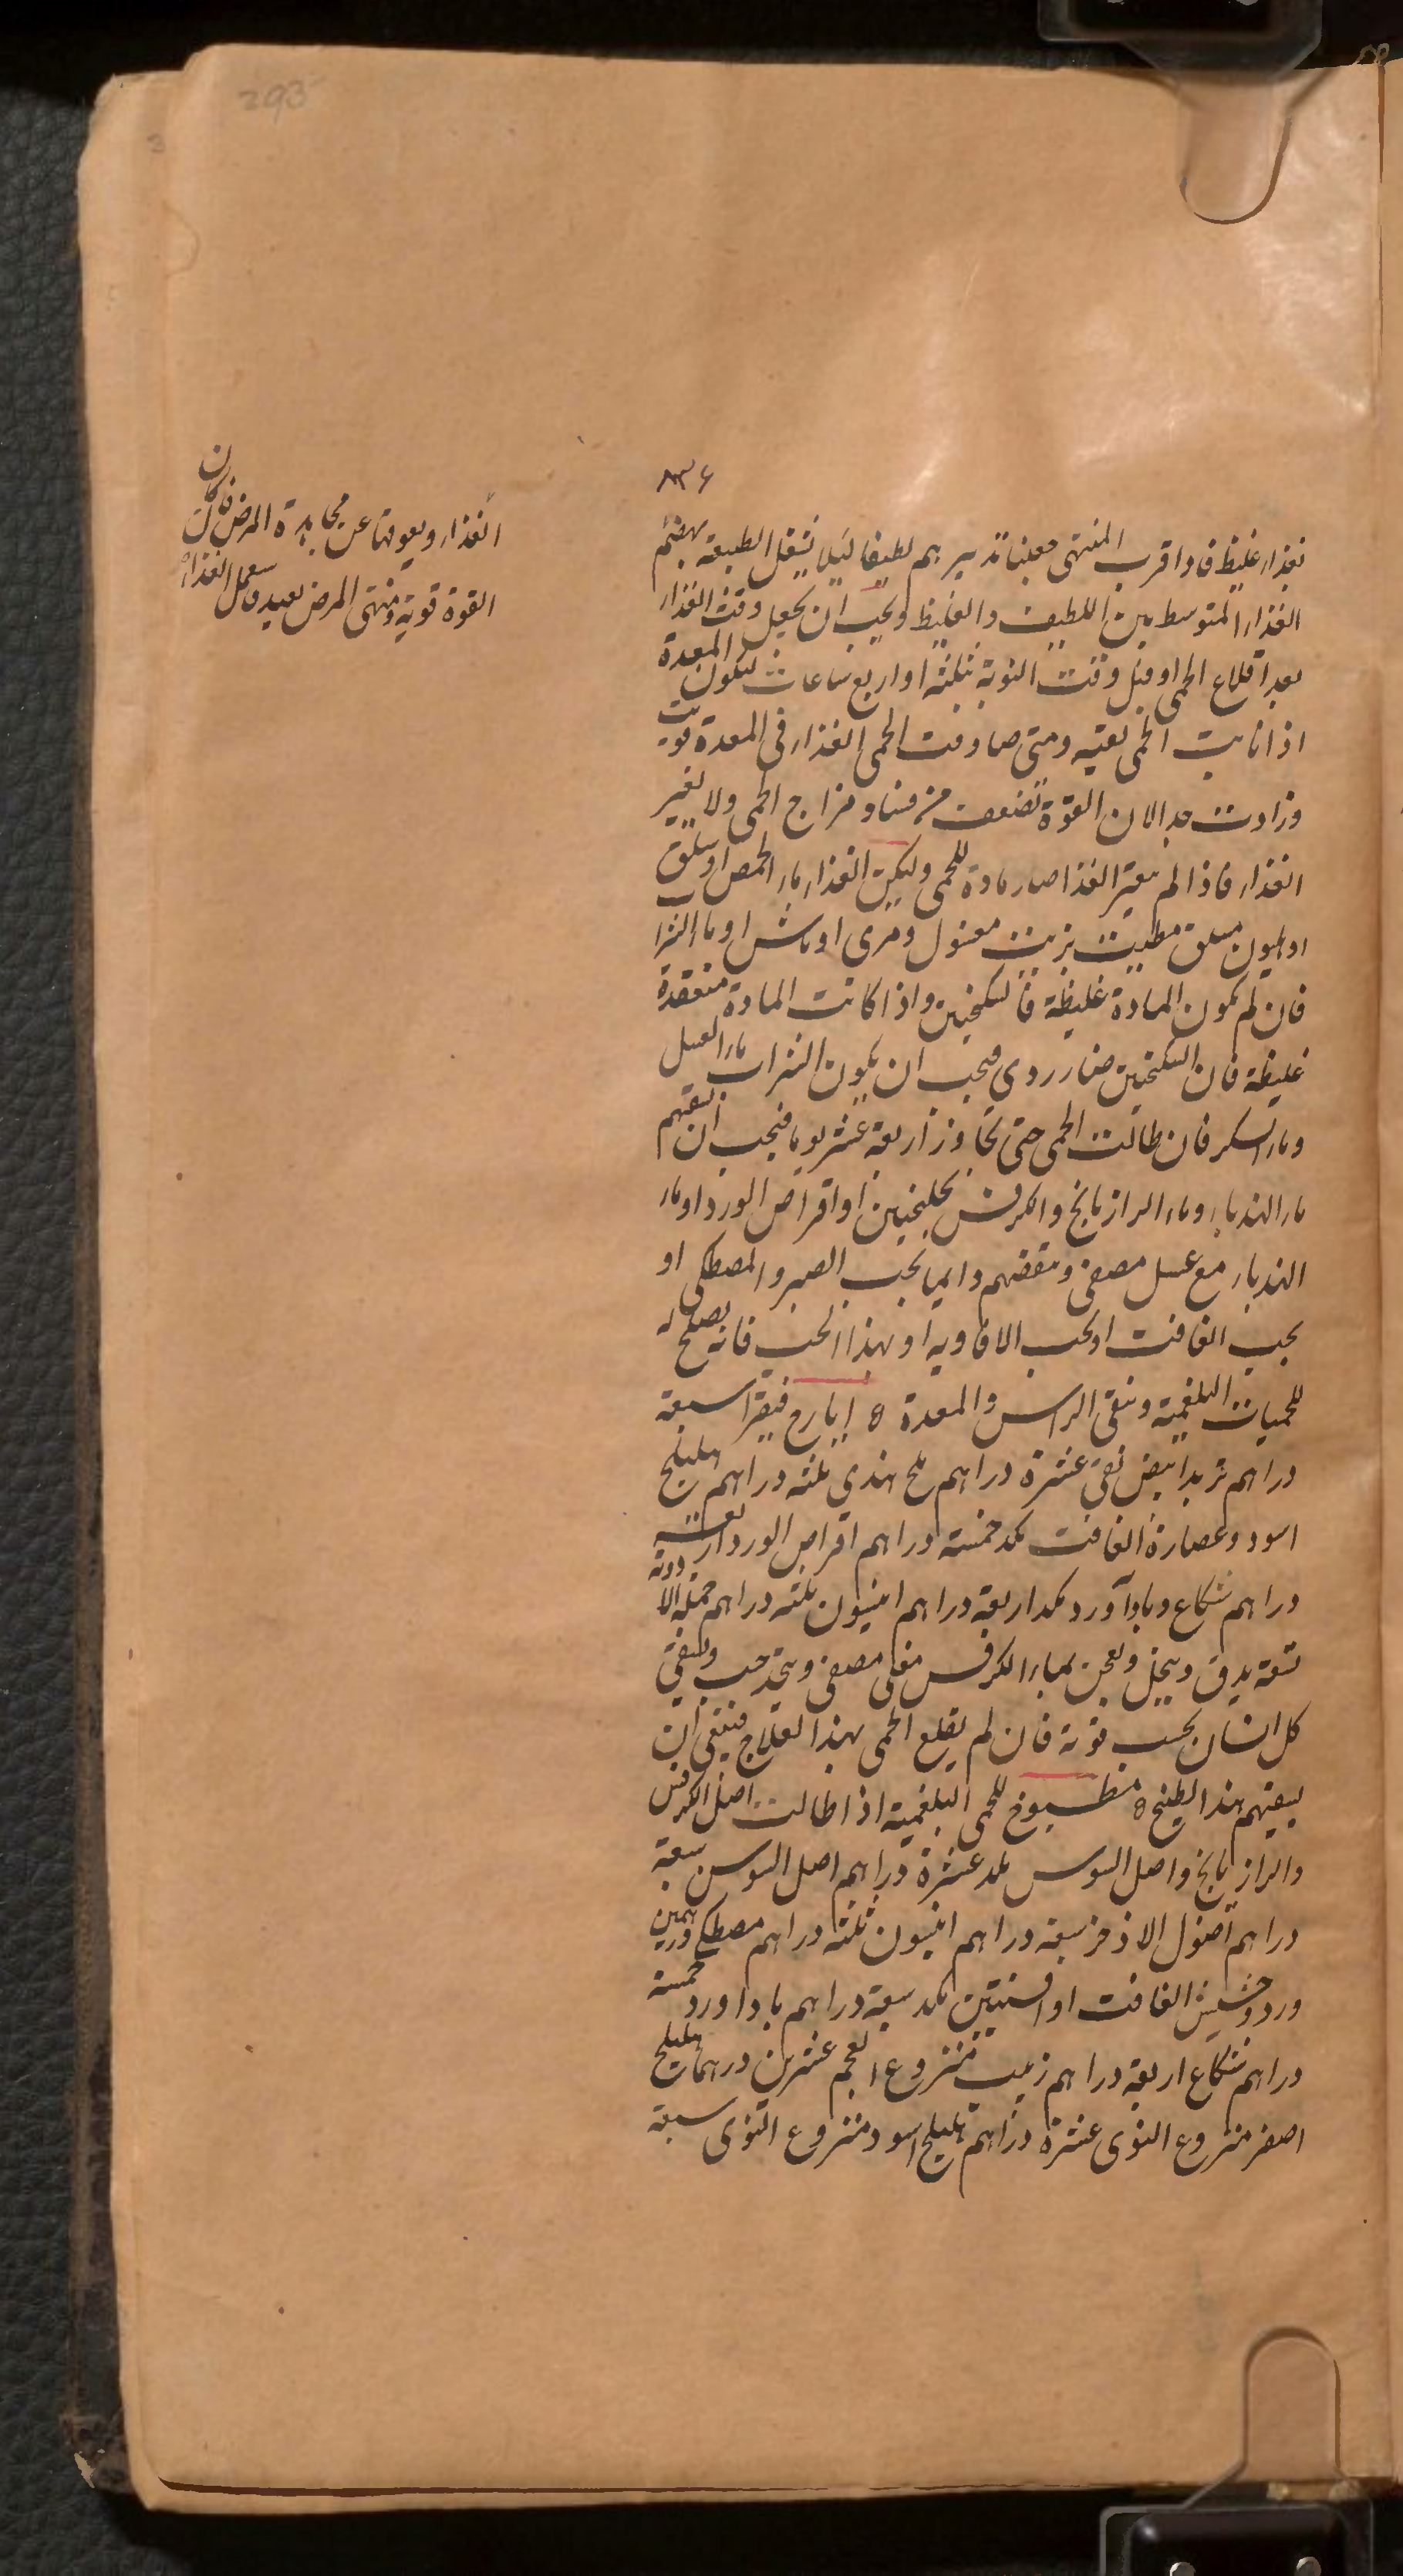 293
٨٣٤
بغذاء غليظ فاذا قرب المنتهى جعلنا تدبيرهم لطيفا لئلا يشغل الطبيعة بهضم
الغذاء المتوسط بين اللطيف والغليظ ويجب ان يجعل وقت الغذاء
بعد اقلاع الحمى او قبل وقت النوبة بثلثة او اربع ساعات ليكون المعدة
اذا نابت الحمى نقية ومتى صادفت الحمى الغذاء فى المعدة قويت
وزادت جدا لان القوة تضعف من فساد مزاج الحمى ولا يغير
الغذاء فاذا لم يتغير الغذا صار مادة للحمى وليكن الغذاء ماء الحمص او سلق
او هليون مسلق مطيب بزيت مغسول ومرى او ماش او ما الشرا
فان لم يكون المادة غليظة فالسكنجبين واذا كانت المادة منعقدة
غليظة فان السكنجبين ضار ردى فيجب ان يكون الشراب ماء العسل
وماء السكر فان طالت الحمى حتى تجاوز اربعة عشر يوما فيجب ان نسقيهم
ماء الهندباء وماء الرازيانج والكرفس بجلنجبين او اقراص الورد او ماء
الهندباء مع عسل مصفى وننقضهم دايما بحب الصبر والمصطكى او
بحب الغافت او بحب الافاويه او بهذا الحب فانه يصلح له
للحميات البلغمية وينقى الراس والمعدة ه ايارج فيقرا سبعة
دراهم تربد ابيض نقى عشرة دراهم ملح هندى ثلثة دراهم هليلج
اسود وعصارة الغافت مكد خمسة دراهم اقراص الورد اربعة
دراهم شكاع وباداورد مكد اربعة دراهم انيسون ثلثة دراهم جملة الادوية
تسعة يدق وينخل ويعجن بماء الكرفس مغلى مصفى ويتخذ حب ويسقى
كل انسان بحسب قوته فان لم يقلع الحمى بهذا العلاج فينبغى ان
يسقيهم هذا الطبيخ ه مطبوخ للحمى البلغمية اذا طالت اصل الكرفس
والرازيانج واصل السوس مكد عشرة دراهم اصل السوسن سبعة
دراهم اصول الاذخر سبعة دراهم انيسون ثلثة دراهم مصطكى درهمين
ورد وحشيش الغافت او افسنتين مكد سبعة دراهم باداورد خمسة
دراهم شكاع اربعة دراهم زبيب منزوع العجم عشرين درهما هليلج
اصفر منزوع النوى عشرة دراهم هليلج اسود منزوع النوى سبعة
الغذاء ويعوقها عن مجاهدة المرض فان كانت
القوة قوية ومنتهى المرض بعيد فاجعل الغذاء